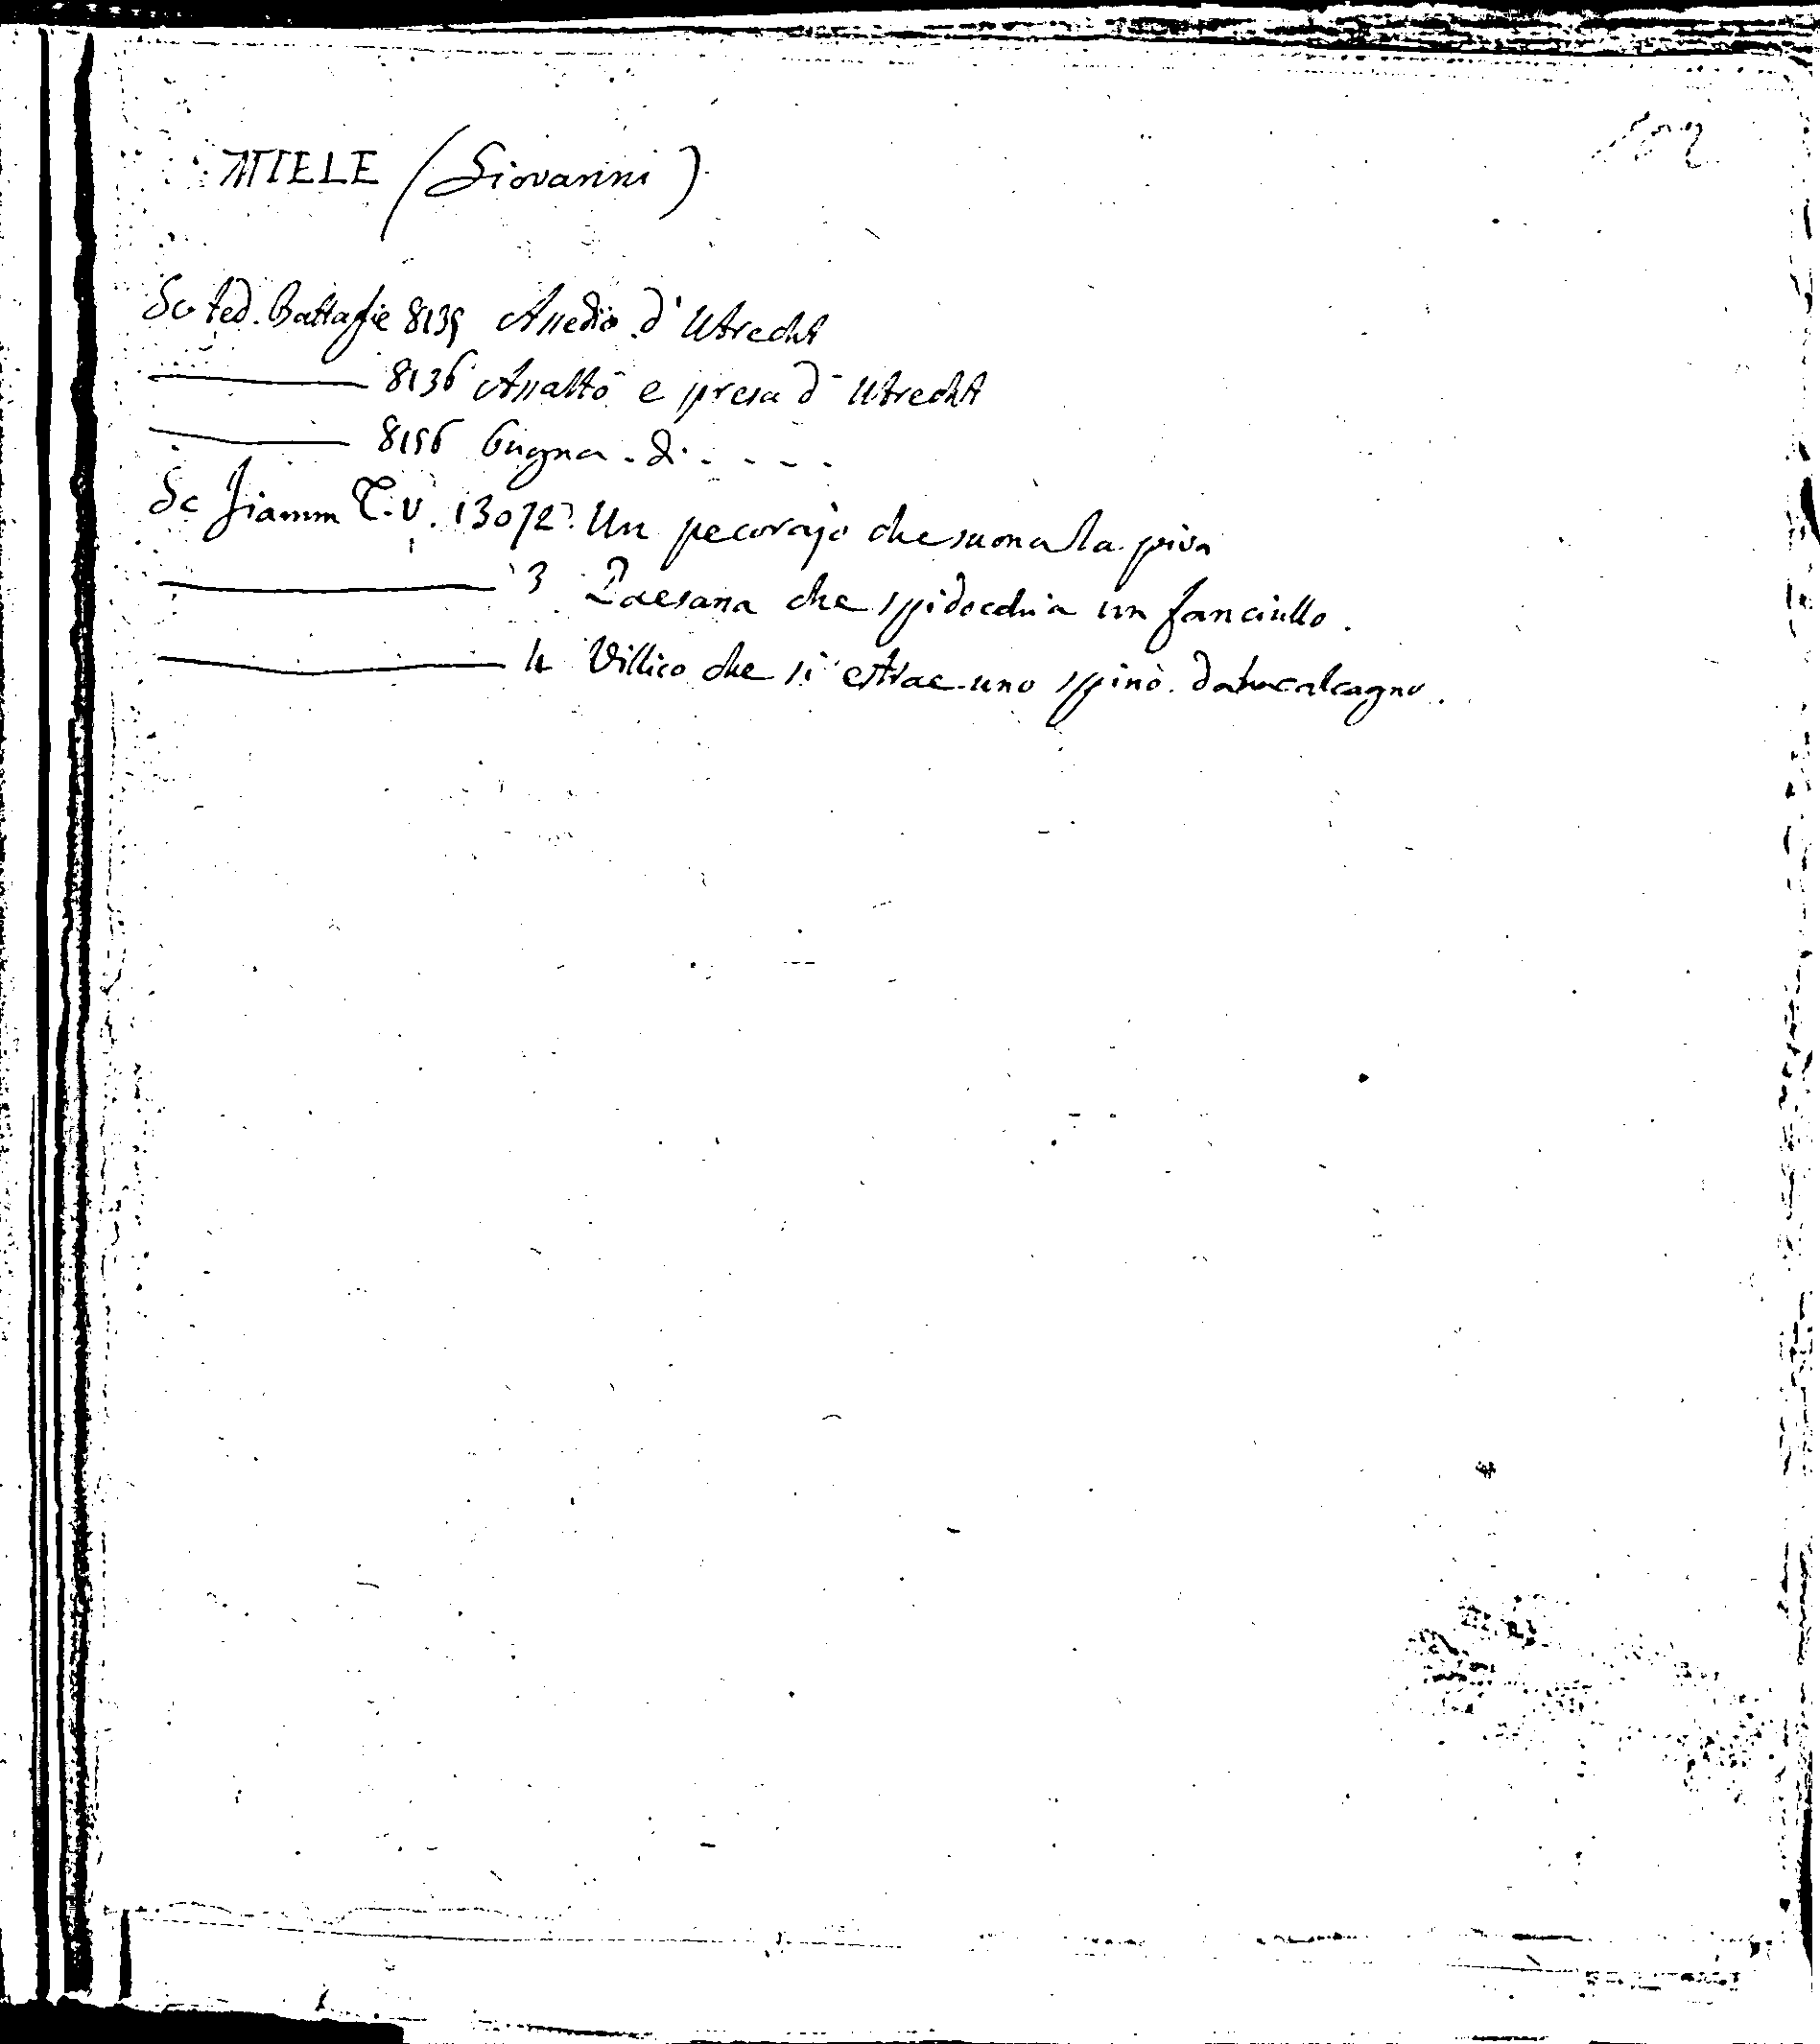 102
MIELE (Giovanni)
Sc ted. Battaglie 8135 Assedio d'Utrecht
8136 Assalto e presa d'Utrecht
8156 Pugna di . . . .
Sc Fiamm T.V. 13072 Un pecorajo che suona la piva
3 Paesana che spidocchia un fanciullo.
4 Villico che si estrae uno spino dal calcagno.